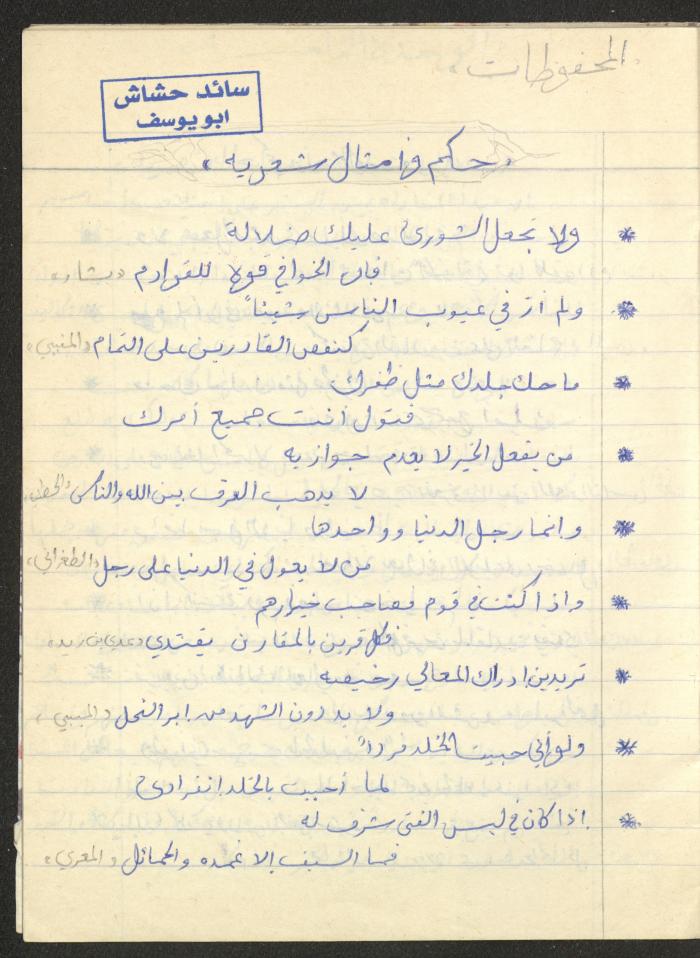 المحفوظات
سائد حشاش
ابو يوسف
"حكم وأمثال شعرية"
* ولا تجعل الشورى عليك ضلالة
فإن الخوافي قوة للقوادم "بشار"
* ولم أر في عيوب الناس شيئاً
كنقص القادرين على التمام "المتنبي"
* ما حك جلدك مثل ظفرك
فتول أنت جميع أمرك
* من يفعل الخير لا يعدم جوازيه
لا يذهب العرف بين الله والناس "الحطيئة"
* وانما رجل الدنيا وواحدها
من لا يعول في الدنيا على رجل "الطغرائي"
* واذا كنت في قوم فصاحب خيارهم
فكل قرين بالمقارن يقتدي "عدي بن زيد"
* تريدين ادراك المعالي رخيصه
ولا بد دون الشهد من ابر النحل "المتنبي"
* ولو أني حبيت الخلد فرداً
لما أحببت بالخلد انفرادي
* اذا كان في لبس الفتى شرف له
فما السيف إلا غمده والحمائل "المعري"